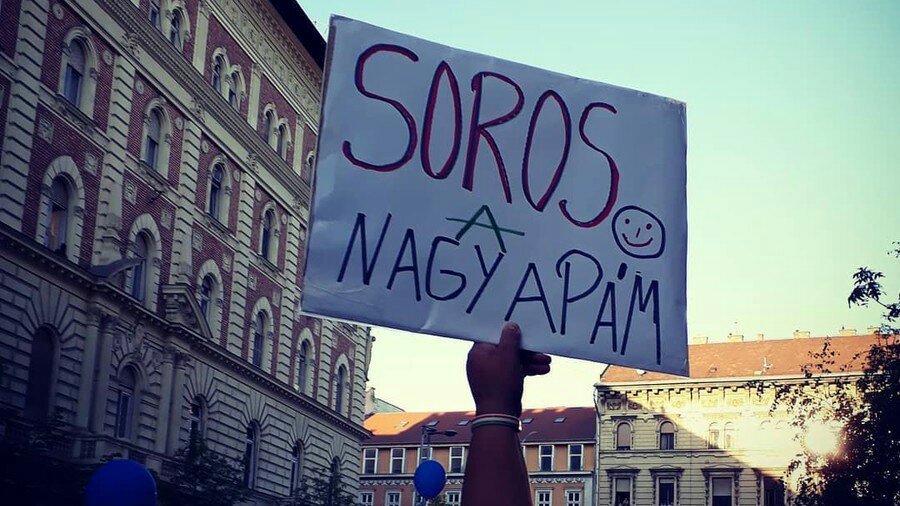 SOROS
A
NAGYAPÁM